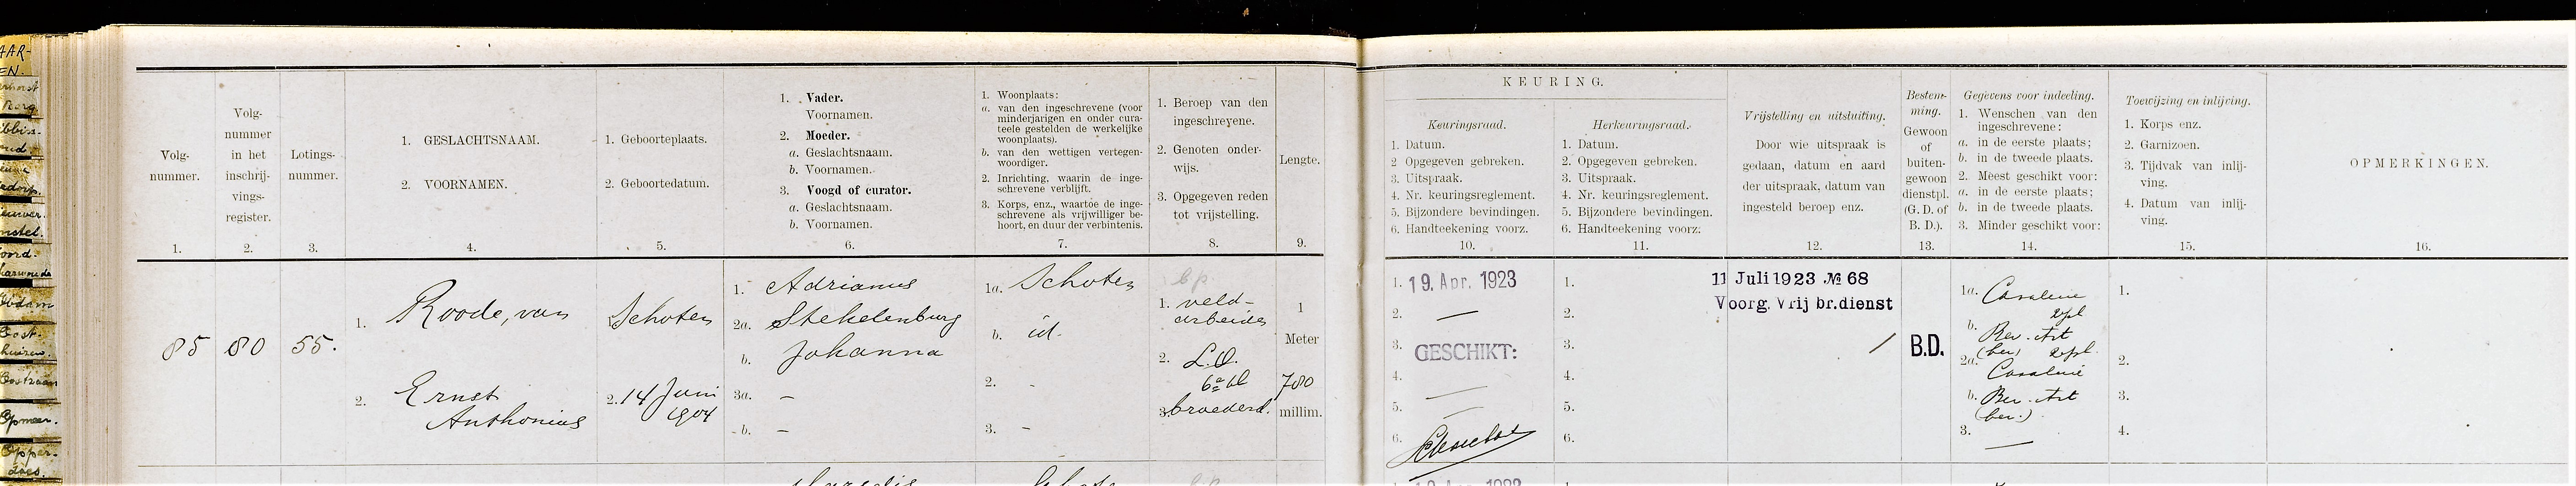 KEURING.
Volg-
nummer.
Volg-
nummer
in het
inschrij-
vings-
register.
Lotings-
nummer.
1. GESLACHTSNAAM.
2. VOORNAMEN.
1. Geboorteplaats.
2. Geboortedatum.
1. Vader.
Voornamen.
2. Moeder.
a. Geslachtsnaam.
b. Voornamen.
3. Voogd of curator.
a. Geslachtsnaam.
b. Voornamen.
1. Woonplaats:
a. van den ingeschrevene (voor
minderjarigen en onder cura-
teele gestelden de werkelijke
woonplaats).
b. van den wettigen vertegen-
woordiger.
2. Inrichting, waarin de inge-
schrevene verblijft.
3. Korps, enz., waartoe de inge-
schrevene als vrijwilliger be-
hoort, en duur der verbintenis.
1. Beroep van den
ingeschrevene.
2. Genoten onder-
wijs.
3. Opgegeven reden
tot vrijstelling.
Lengte.
Keuringsraad.
1. Datum.
2 Opgegeven gebreken.
3. Uitspraak.
4. Nr. keuringsreglement.
5. Bijzondere bevindingen.
6. Handteekening voorz.
Herkeuringsraad.
1. Datum.
2. Opgegeven gebreken.
3. Uitspraak.
4. Nr. keuringsreglement.
5. Bijzondere bevindingen.
6. Handteekening voorz.
Vrijstelling en uitsluiting.
Door wie uitspraak is
gedaan, datum en aard
der uitspraak, datum van
ingesteld beroep enz.
Bestem-
ming.
Gewoon
of
buiten-
gewoon
dienstpl.
(G. D. of
B. D.).
Gegevens voor indeeling.
1. Wenschen van den
ingeschrevene:
a. in de eerste plaats;
b. in de tweede plaats.
2. Meest geschikt voor:
a. in de eerste plaats;
b. in de tweede plaats.
3. Minder geschikt voor:
Toewijzing en inlijving.
1. Korps enz.
2. Garnizoen.
3. Tijdvak van inlij-
ving.
4. Datum van inlij-
ving.
OPMERKINGEN.
1. 2. 3. 4. 5. 6. 7. 8. 9. 10. 11. 12. 13. 14. 15. 16.
85 80 55.
1. Roode, van
2. Ernst
Anthonius
Schoten
2. 14 Juni
1904
1. Adrianus
2a. Stekelenburg
b. Johanna
3a. –
b. –
1a. Schoten
b. id.
2. -
3. -
b.p.
1. veld-
arbeider
2. L.O.
6e kl
3. broederd.
1
Meter
780
millim.
1. 19. Apr. 1923
2. —
3. GESCHIKT:
4. —
5. —
6.
1.
2.
3.
4.
5.
6.
11 Juli 1923 № 68
Voorg. Vrij br.dienst
/
B.D.
1a. Cavalerie
b. Ber. Art
(ber)
2a. Cavalerie
b. Ber. Art
(ber.)
3. —
1.
2.
3.
4.